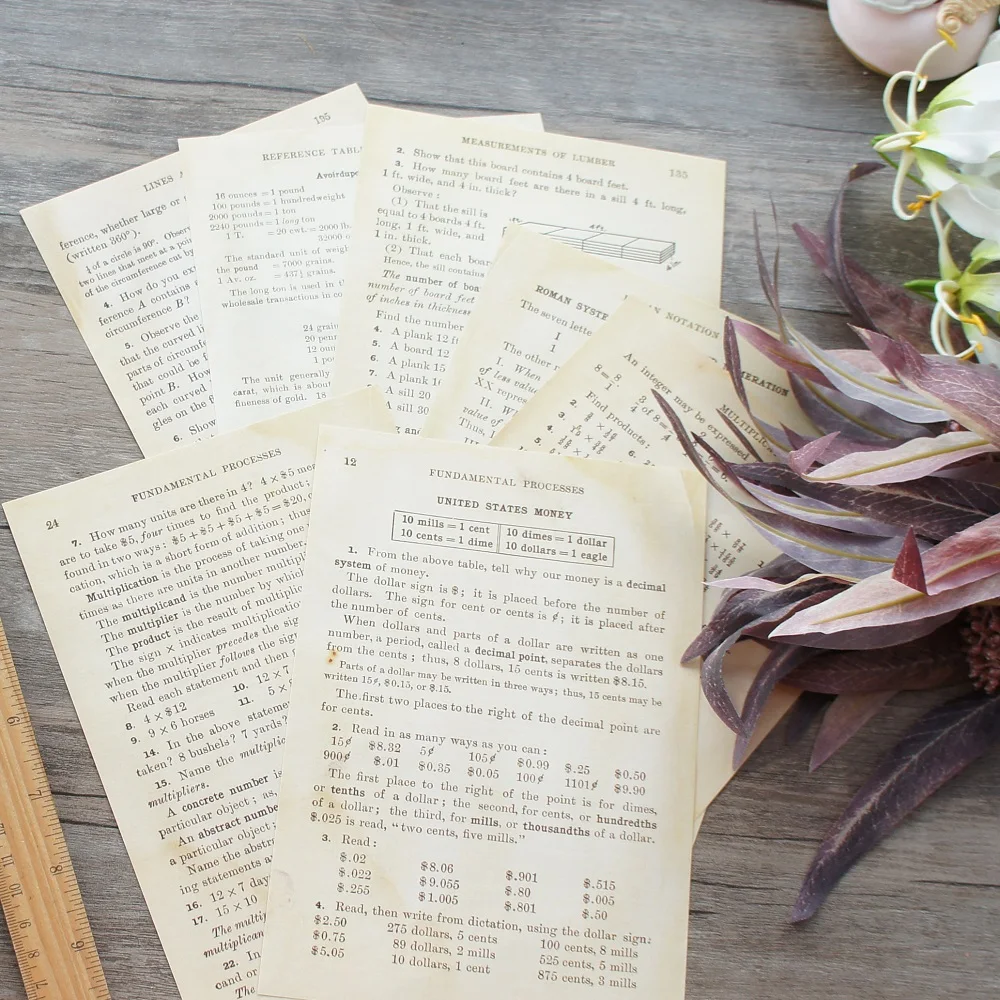 195
LINES
ference, whether large or
(written 360°).
¼ of a circle is 90°. Observ
two lines that meet at a poin
of the circumference cut by
4. How do you ex
ference A contains
circumference B?
5. Observe the
that the curved li
parts of circumfe
that could be
point B. How
each curved
gles on the
6. Show
REFERENCE TABL
Avoirdupo
16 ounces = 1 pound
100 pounds = 1 hundredweight
2000 pounds = 1 ton
2240 pounds = 1 long ton
1 T. = 20 cwt. = 2000 lb
32000 o
The standard unit of weigh
the pound = 7000 grains.
1 Av. oz. = 437½ grains.
The long ton is used in t
wholesale transactions in co
24 grain
20 penn
12 oun
1 po
The unit generally
carat, which is about
fineness of gold. 18
MEASUREMENTS OF LUMBER 135
2. Show that this board contains 4 board feet.
3. How many board feet are there in a sill 4 ft. long,
1 ft. wide, and 4 in. thick?
Observe:
(1) That the sill is
equal to 4 boards 4 ft.
long, 1 ft. wide, and
1 in. thick.
4ft.
4in.
(2) That each boar
Hence, the sill contains
The number of boa
number of board feet
of inches in thickness
Find the number
4. A plank 12 ft
5. A board 12
6. A plank 15
7. A plank 16
A sill 20
A sill 30
and
ROMAN SYSTE
The seven lette
I
1
The other n
I. When
of less value
XX repres
II. W
value of
Thus,
N NOTATION
MERATION
An integer may be expressed
8 = 8
1
MULTIPLIC
Find products:
2.
3.
4.
5.
6.
24 FUNDAMENTAL PROCESSES
7. How many units are there in 4? 4 × $5 mea
are to take $5, four times to find the product;
found in two ways: $5 + $5 + $5 + $5 = $20,
cation, which is a short form of addition; thus
Multiplication is the process of taking one
times as there are units in another number.
The multiplicand is the number multipl
The multiplier is the number by which
The product is the result of multiplic
The sign × indicates multiplication
when the multiplier precedes the sig
when the multiplier follows the sign
Read each statement and then
8. 4 × $12 10. 12 × 7
9. 9 × 6 horses 11. 5 ×
14. In the above stateme
taken? 8 bushels? 7 yards?
15. Name the multiplic
multipliers.
A concrete number is
particular object; as,
An abstract numbe
a particular object;
Name the abstra
ing statements a
16. 12 × 7 day
17. 15 × 10
The multi
multiplican
22. In
cand or
The
12 FUNDAMENTAL PROCESSES
UNITED STATES MONEY
10 mills = 1 cent 10 dimes = 1 dollar
10 cents = 1 dime 10 dollars = 1 eagle
1. From the above table, tell why our money is a decimal
system of money.
The dollar sign is $; it is placed before the number of
dollars. The sign for cent or cents is ¢; it is placed after
the number of cents.
When dollars and parts of a dollar are written as one
number, a period, called a decimal point, separates the dollars
from the cents; thus, 8 dollars, 15 cents is written $8.15.
Parts of a dollar may be written in three ways; thus, 15 cents may be
written 15¢, $0.15, or $.15.
The first two places to the right of the decimal point are
for cents.
2. Read in as many ways as you can:
15¢ $8.32 5¢ 105¢ $0.99 $.25 $0.50
900¢ $.01 $0.35 $0.05 100¢ 1101¢ $9.90
The first place to the right of the point is for dimes,
or tenths of a dollar; the second, for cents, or hundredths
of a dollar; the third, for mills, or thousandths of a dollar.
$.025 is read, "two cents, five mills."
3. Read:
$.02 $8.06 $.901 $.515
$.022 $9.055 $.80 $.005
$.255 $1.005 $.801 $.50
4. Read, then write from dictation, using the dollar sign:
$2.50 275 dollars, 5 cents 100 cents, 8 mills
$0.75 89 dollars, 2 mills 525 cents, 5 mills
$5.05 10 dollars, 1 cent 875 cents, 3 mills
6
8
9